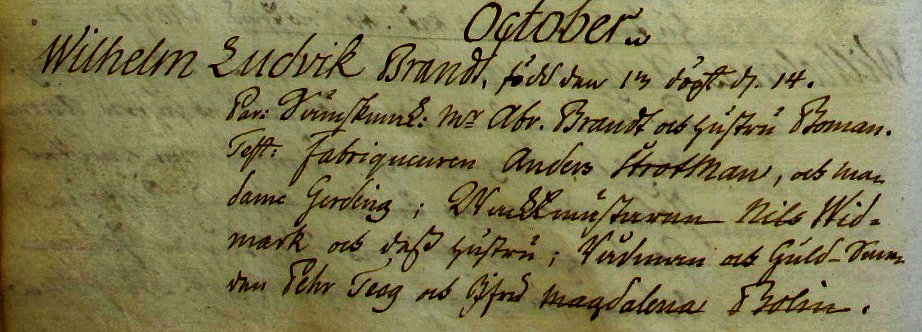 October
Wilhelm Ludvik Brandt, född den 13 döpt d. 14.
Par: Swinskunk: Mr Abr. Brandt och Hustru Boman.
Test: Fabriqueuren Anders Strotman, och ma-
dame Gerding; Wackmästaren Nils Wid-
mark och dess Hustru; Rådman och Guld-Sme-
den Pehr Teag och Jfru Magdalena Bolin.